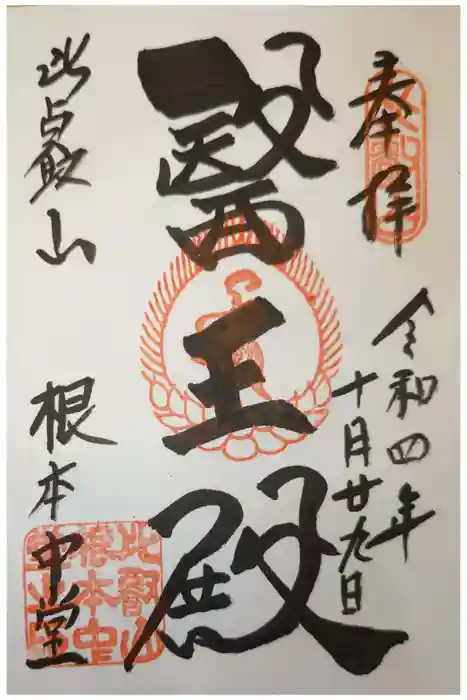 奉拝
令和四年
十月廿九日
醫王殿
比叡山
根本中堂
比叡山
根本中